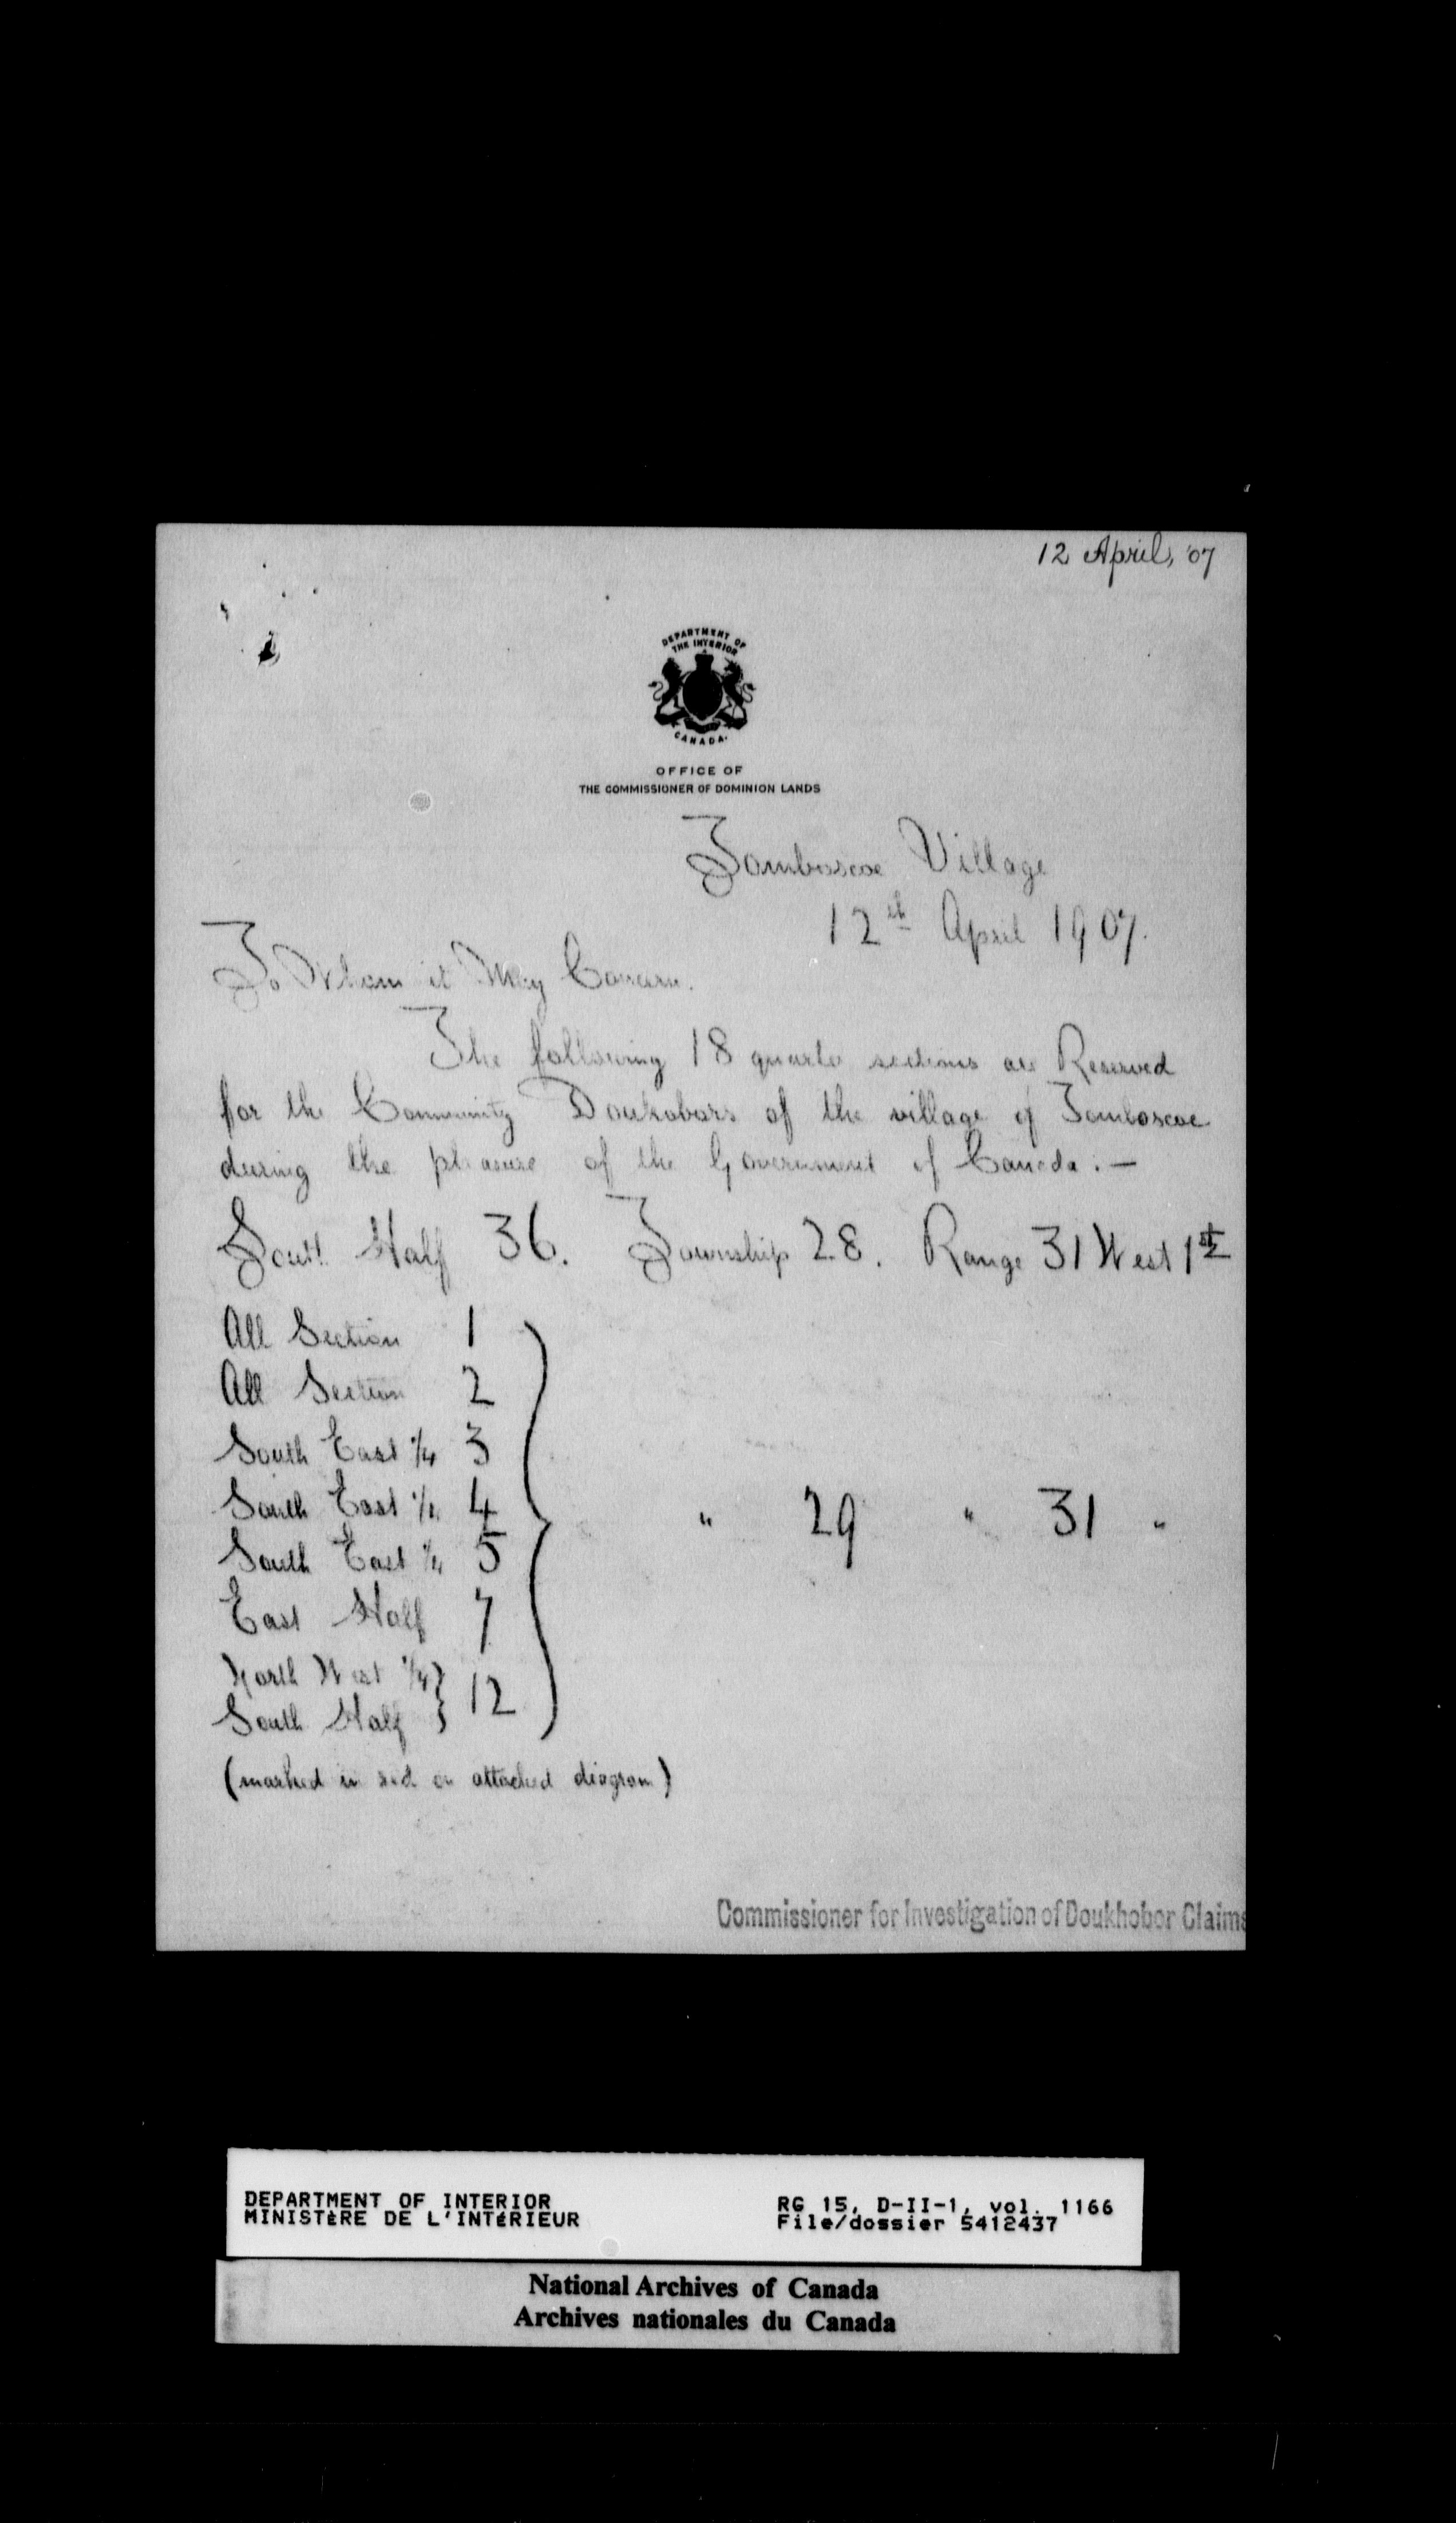 12 April, '07
DEPARTMENT OF
THE INTERIOR
CANADA.
OFFICE OF
THE COMMISSIONER OF DOMINION LANDS
Tamboscoe Village
12th April 1907.
To Whom it May Concern.
The following 18 quarter sections are Reserved
for the Community Doukobors of the village of Tamboscoe
during the pleasure of the Government of Canada. —
South Half 36. Township 28. Range 31 West 1st
All Section 1
All Section 2
South East 1/4 3
South East 1/4 4 " 29 " 31 "
South East 1/4 5
East Half 7
North West 1/4 } 12
South Half }
(marked in red on attached diagram)
Commissioner for Investigation of Doukhobor Claims
DEPARTMENT OF INTERIOR RG 15, D-II-1, vol. 1166
MINISTèRE DE L'INTéRIEUR File/dossier 5412437
National Archives of Canada
Archives nationales du Canada